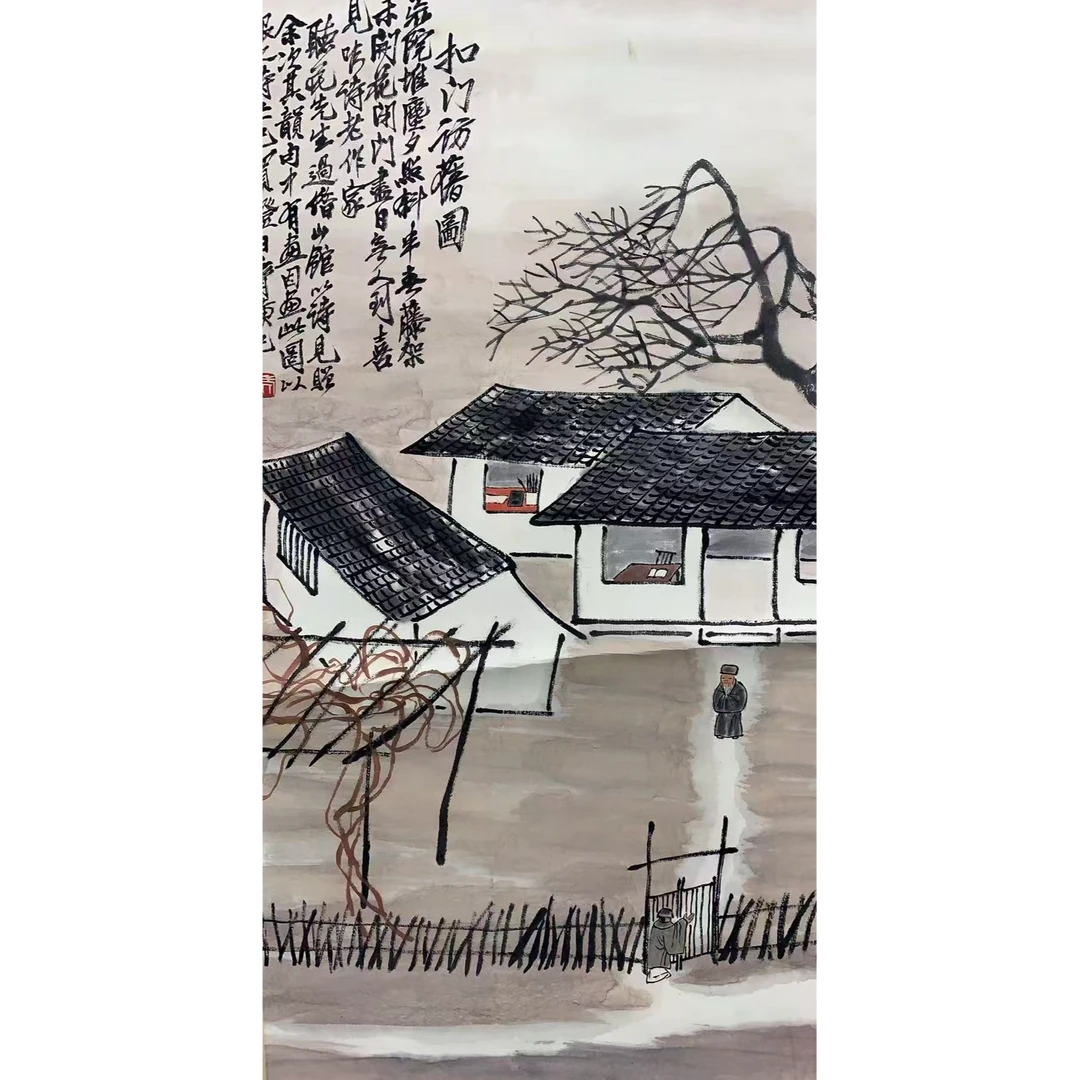 扣門訪舊圖
荒院堆塵夕照斜半春藤架
未開花閉門盡日無人到喜
見吟詩老作家
聽花先生過借山館以詩見贈
余次其韻句中有畫因畫此圖以